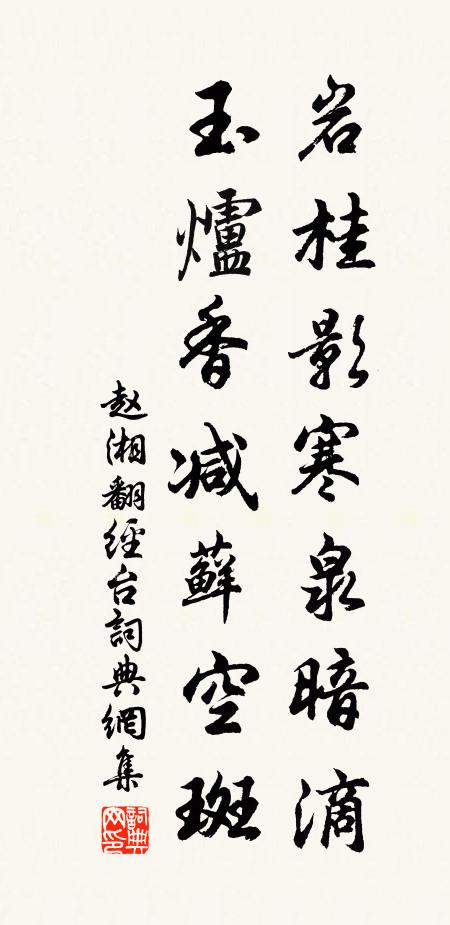 岩桂影寒泉暗滴
玉爐香减蘚空斑
赵湘翻經台詞典網集
詞典網印